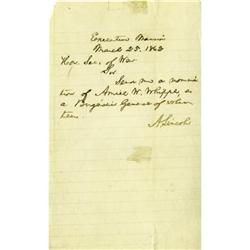 Executive Mansion
March 25. 1863
Hon. Sec. of War
Sir
Send me a nomina
tion of Amiel W. Whipple, as
a Brigadier General of volun
teers.
A. Lincoln